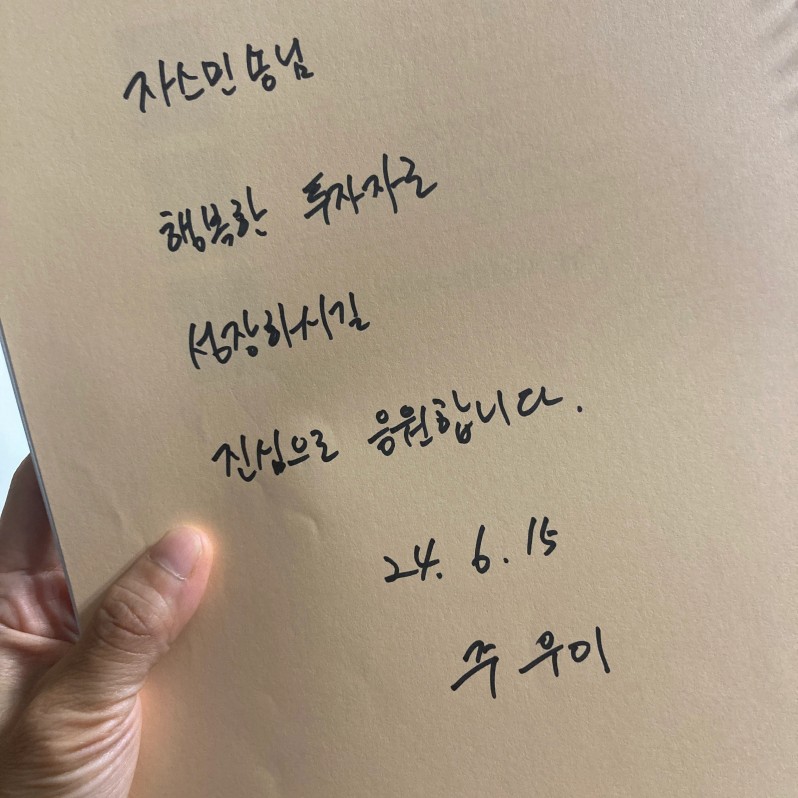 자스민송님
행복한 투자자로
성장하시길
진심으로 응원합니다.
24. 6. 15
주우이